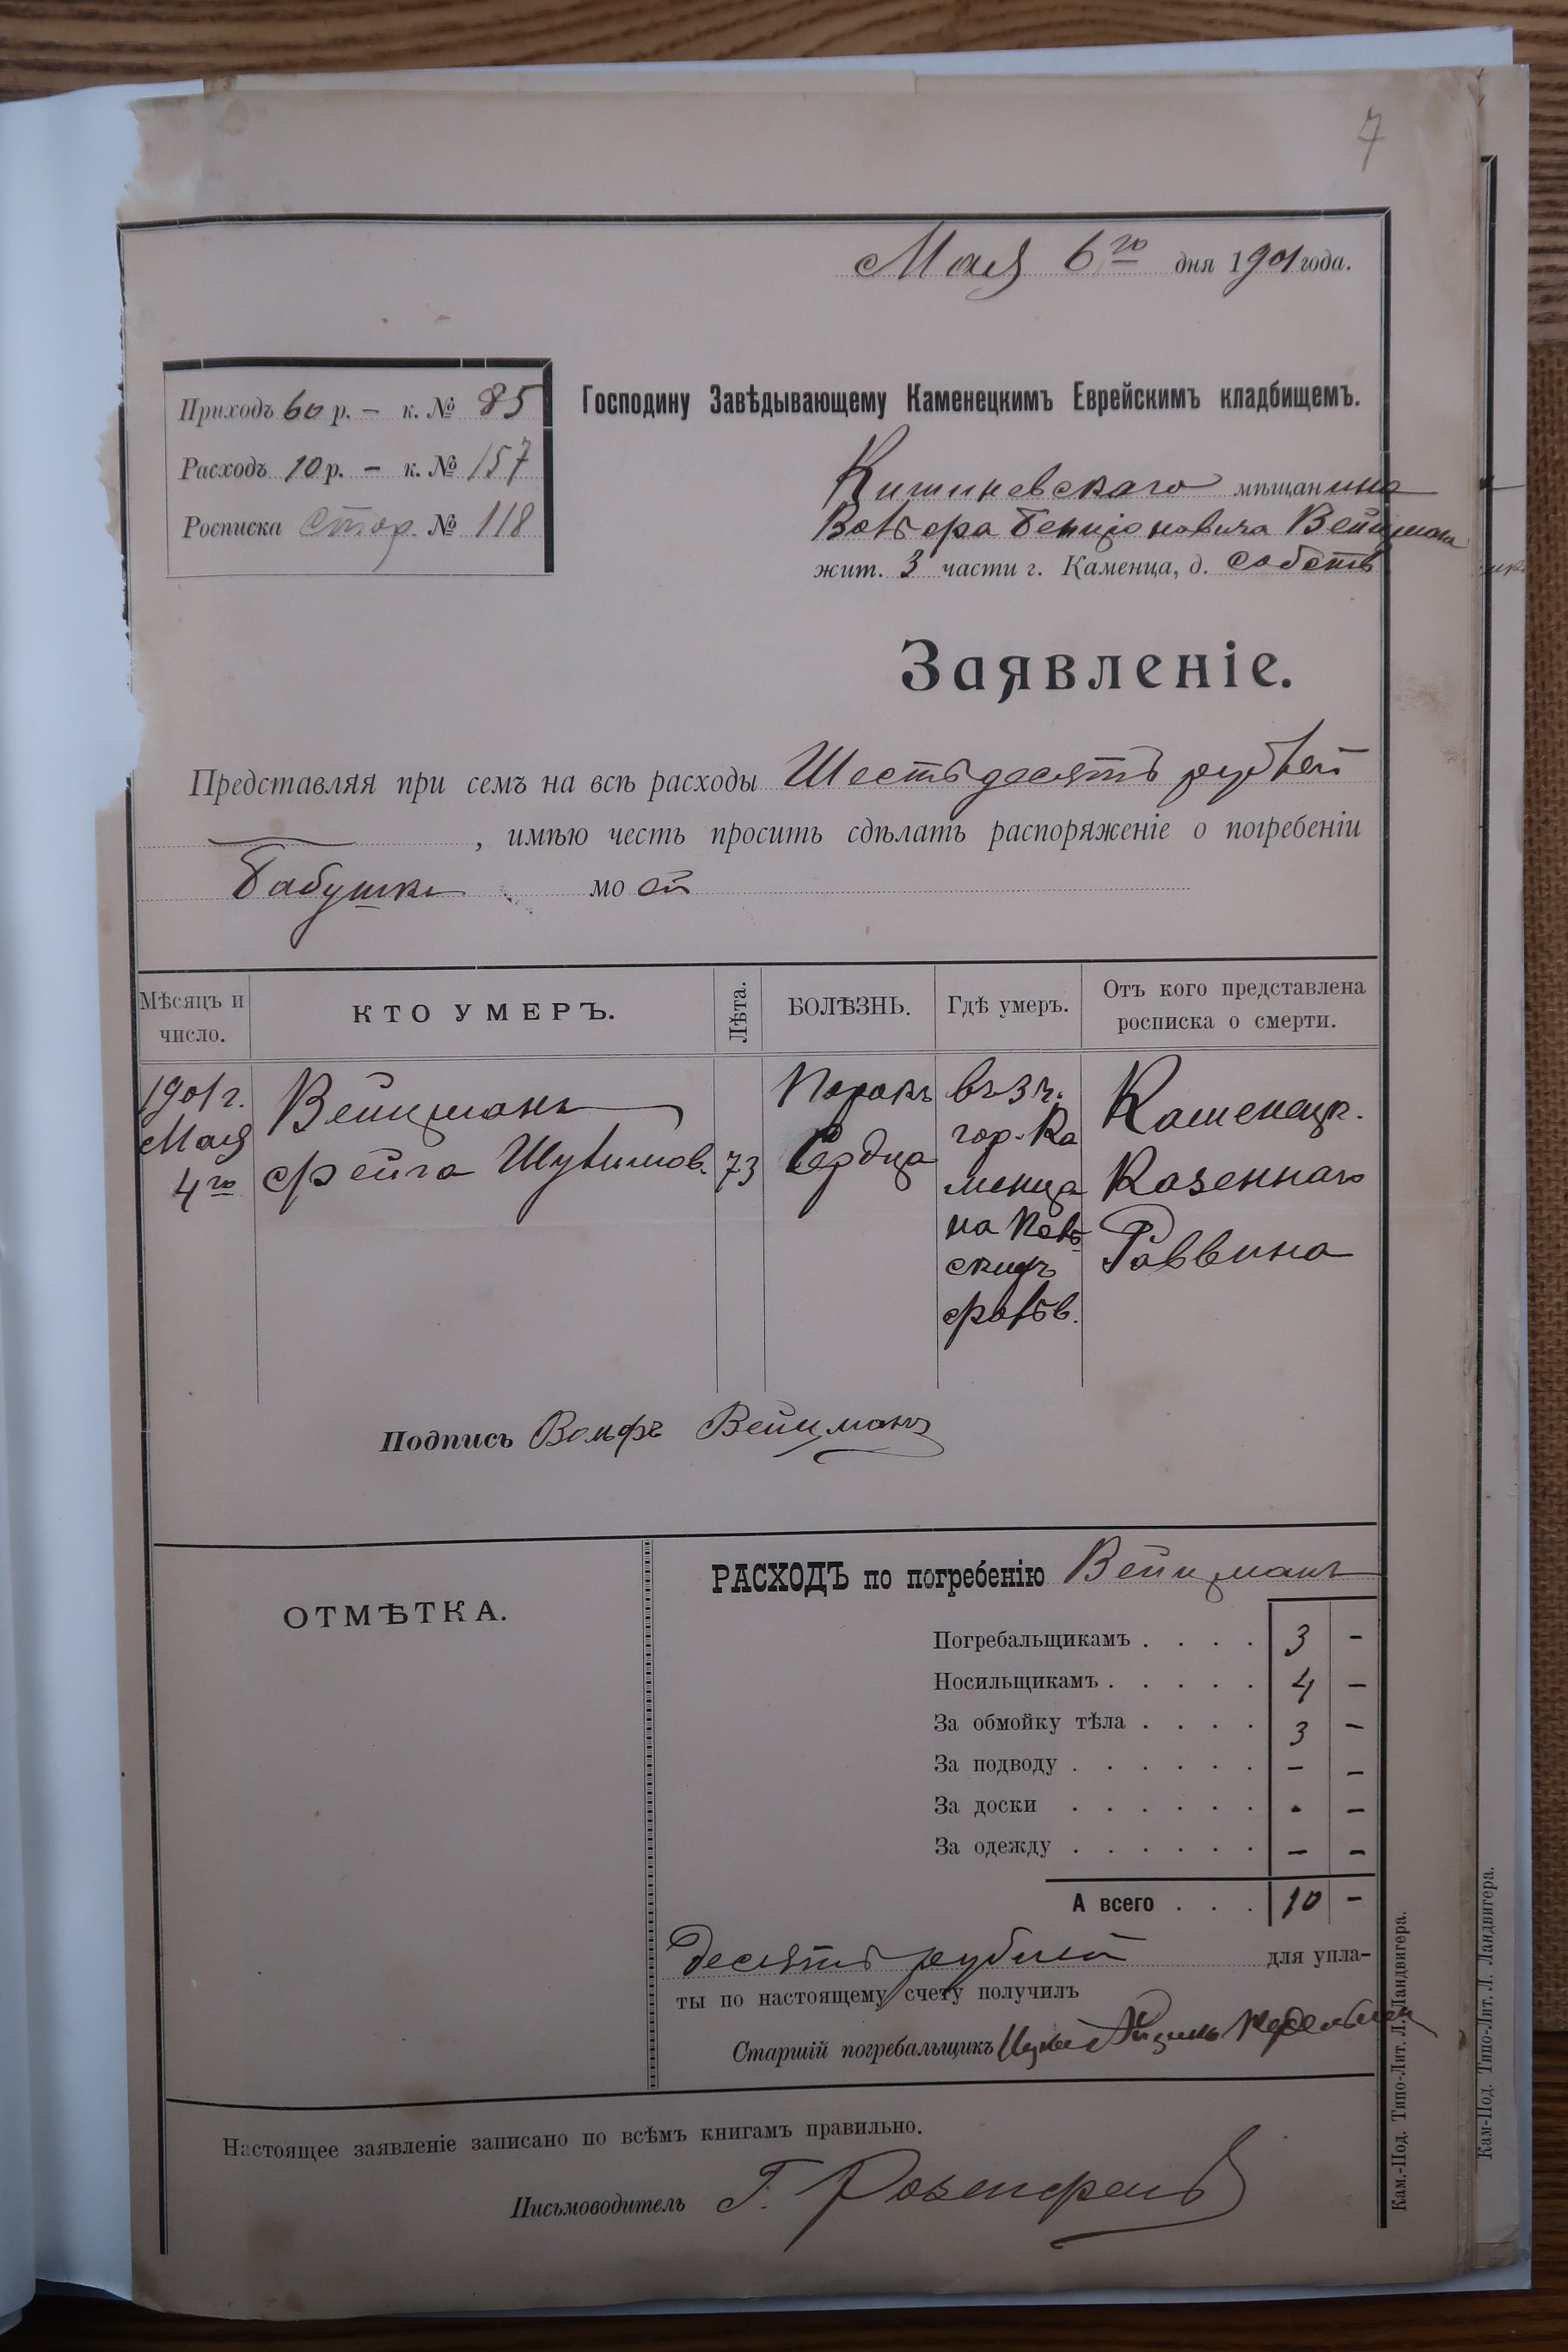 7
Мая 6го дня 1901 года.
Приходъ 60 р. – к. № 85
Расходъ 10 р. – к. № 157
Росписка стор. № 118
Господину Завѣдывающему Каменецкимъ Еврейскимъ кладбищемъ.
Кишиневскаго мѣщанина
Вольфа Бенціоновича Вейцмана
жит. 3 части г. Каменца, д. собств
Заявленіе.
Представляя при семъ на всѣ расходы Шестьдесятъ рублей
, имѣю честь просить сдѣлать распоряженіе о погребеніи
Бабушки моей
Мѣсяцъ и число.
КТО УМЕРЪ.
Лѣта.
БОЛѢЗНЬ.
Гдѣ умеръ.
Отъ кого представлена росписка о смерти.
1901 г. Мая 4го
Вейцманъ Фейга Шулимов.
73
Порокъ Сердца
въ 3 ч. гор. Каменца на фольв.
Каменецк. Казеннаго Раввина
Подпись Вольфъ Вейцманъ
ОТМѢТКА.
РАСХОДЪ по погребенію Вейцманъ
Погребальщикамъ . . . . 3 –
Носильщикамъ . . . . . 4 –
За обмойку тѣла . . . . 3 –
За подводу . . . . . . – –
За доски . . . . . . - –
За одежду . . . . . . – –
А всего . . . 10 –
Десять рублей для упла-
ты по настоящему счету получилъ
Старшій погребальщикъ
Настоящее заявленіе записано по всѣмъ книгамъ правильно.
Письмоводитель Г. Розенфельд
Кам.-Под. Типо-Лит. Л. Ландвигера.
Кам-Под. Типо-Лит. Л. Ландвигера.